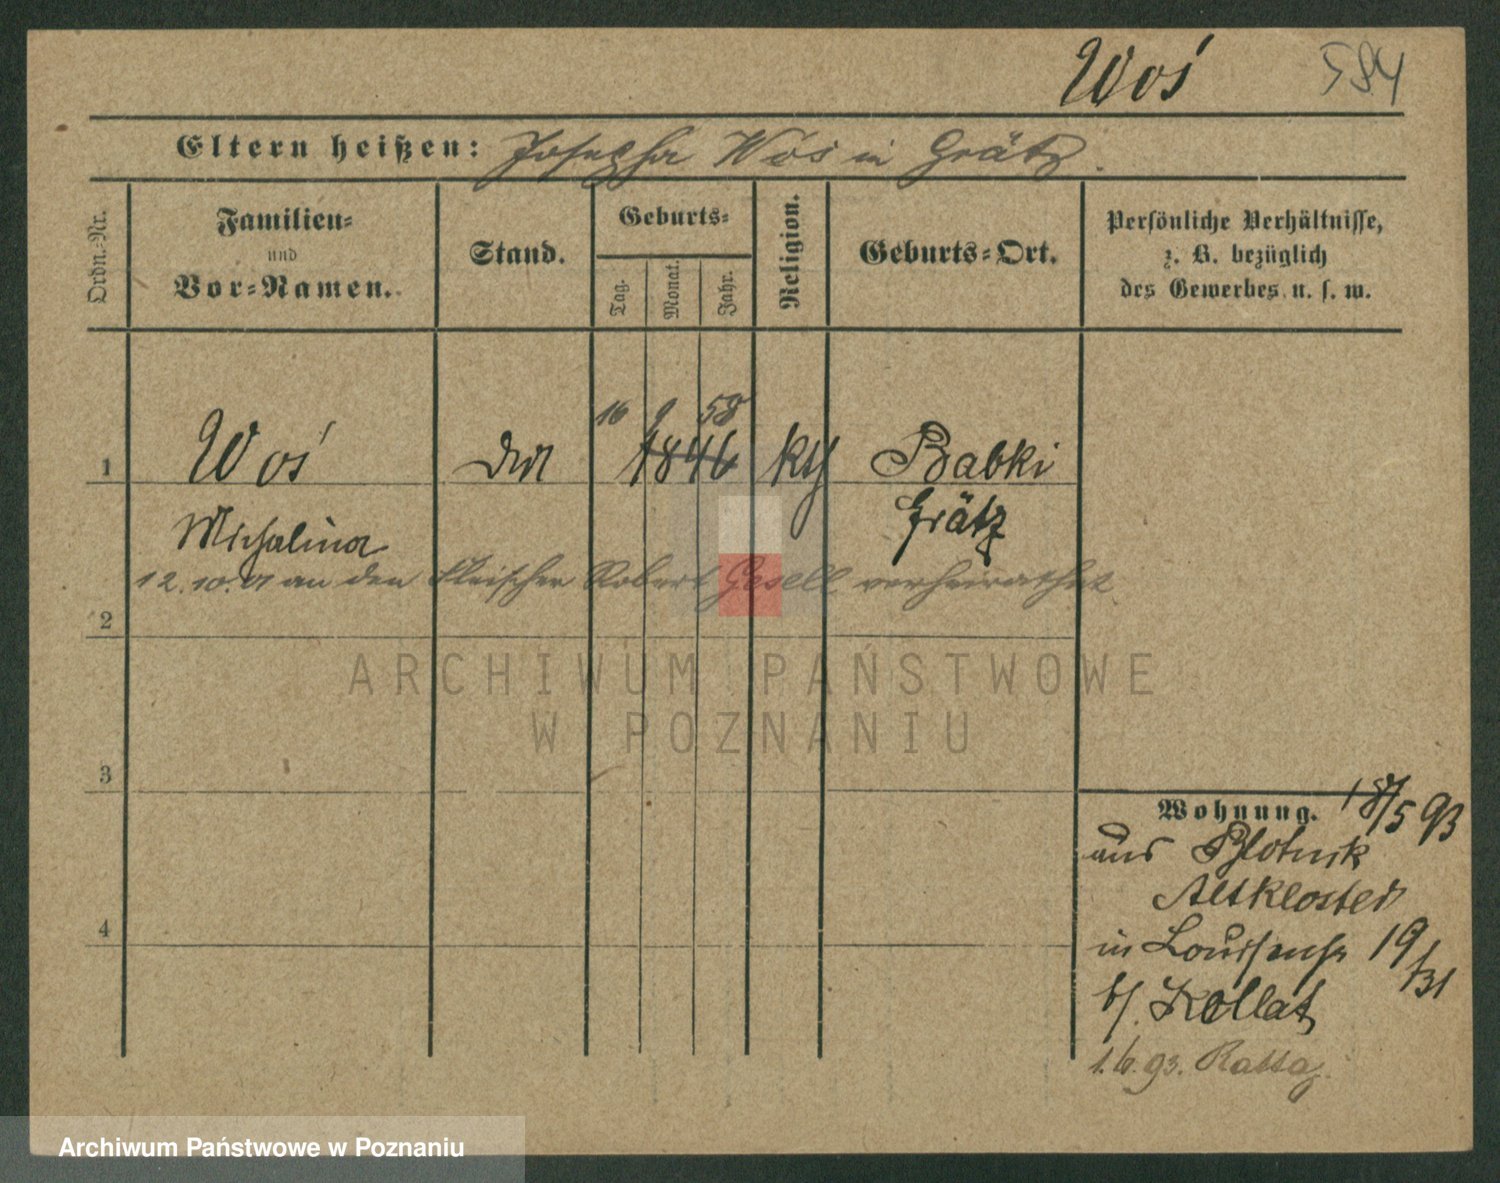 Woś 584
Eltern heißen: Josepha Woś in Grätz.
Ordn.-Nr.
Familien-
und
Vor-Namen.
Stand.
Geburts-
Tag.
Monat.
Jahr.
Religion.
Geburts-Ort.
Persönliche Verhältnisse,
z. B. bezüglich
des Gewerbes u. s. w.
16 9 58
1 Woś 1846 kth Babki
Michalina Grätz
12.10.01 an den Fleischer Robert Gesell verheirathet
2
ARCHIWUM PAŃSTWOWE
W POZNANIU
3
Wohnung. 18/5 93
aus
Altkloster
4
in Louisenstr 19/31
b/. Kollat
1.6.93.
Archiwum Państwowe w Poznaniu